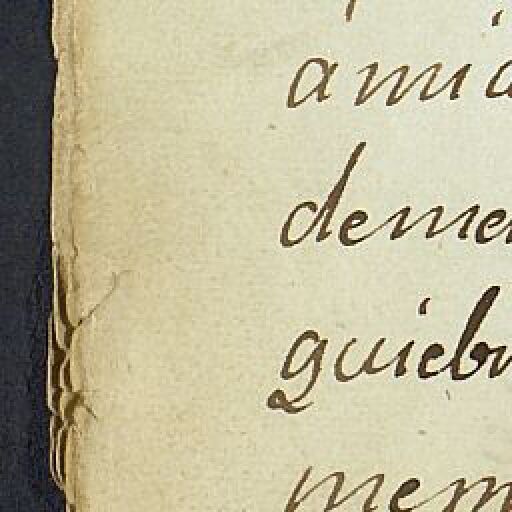 ami
deme
quieb
mem